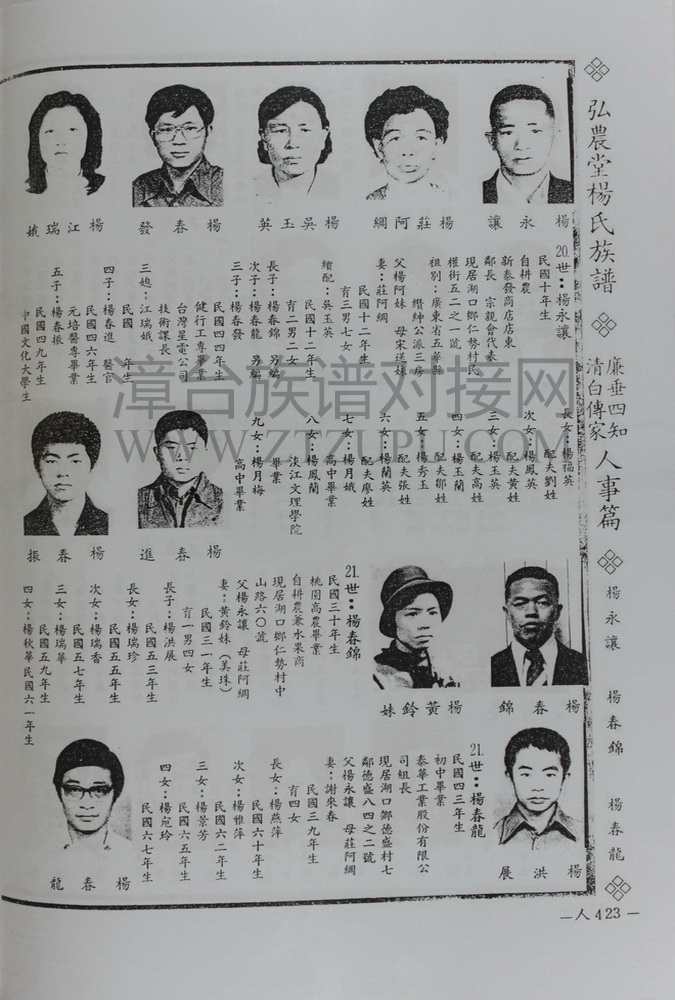 弘農堂楊氏族譜
廉垂四知
清白傳家
人事篇
楊永讓 楊春錦 楊春龍
楊永讓
楊莊阿綢
楊吳玉英
楊春發
楊江瑞娥
20.世：楊永讓
民國十年生
自耕農
新泰發商店店東
鄰長 宗親會代表
現居湖口鄉仁勢村民
權街五二之一號
祖別：廣東省五華縣
纘紳公派三房
父楊阿妹 母宋送妹
妻：莊阿綢
民國十二年生
育三男七女
續配：吳玉英
民國十二年生
育二男二女
長子：楊春錦 另編
次子：楊春龍 另編
三子：楊春發
民國四四年生
健行工專畢業
台灣星電公司
技術課長
三媳：江瑞娥
民國 年生
四子：楊春進 醫官
民國四六年生
元培醫專畢業
五子：楊春振
民國四九年生
中國文化大學生
長女：楊福英
配夫劉姓
次女：楊鳳英
配夫黃姓
三女：楊玉英
配夫高姓
四女：楊玉蘭
配夫鄒姓
五女：楊秀玉
配夫張姓
六女：楊蘭英
配夫廖姓
七女：楊月娥
高中畢業
八女：楊鳳蘭
淡江文理學院
畢業
九女：楊月梅
高中畢業
楊春進
楊春振
楊春錦
楊黃鈴妹
21.世：楊春錦
民國三十年生
桃園高農畢業
自耕農兼水果商
現居湖口鄉仁勢村中
山路六〇號
父楊永讓 母莊阿綢
妻：黃鈴妹（美珠）
民國三一年生
育一男四女
長子：楊洪展
民國五三年生
長女：楊瑞珍
民國五五年生
次女：楊瑞香
民國五七年生
三女：楊瑞華
民國五九年生
四女：楊秋華民國六一年生
楊洪展
21.世：楊春龍
民國四三年生
初中畢業
泰華工業股份有限公
司組長
現居湖口鄉德盛村七
鄰德盛八四之二號
父楊永讓 母莊阿綢
妻：謝來春
民國三九年生
育四女
長女：楊燕萍
民國六十年生
次女：楊雅萍
民國六二年生
三女：楊景芳
民國六五年生
四女：楊宛玲
民國六七年生
楊春龍
—人423—
漳台族谱对接网
WWW.ZTZUPU.COM